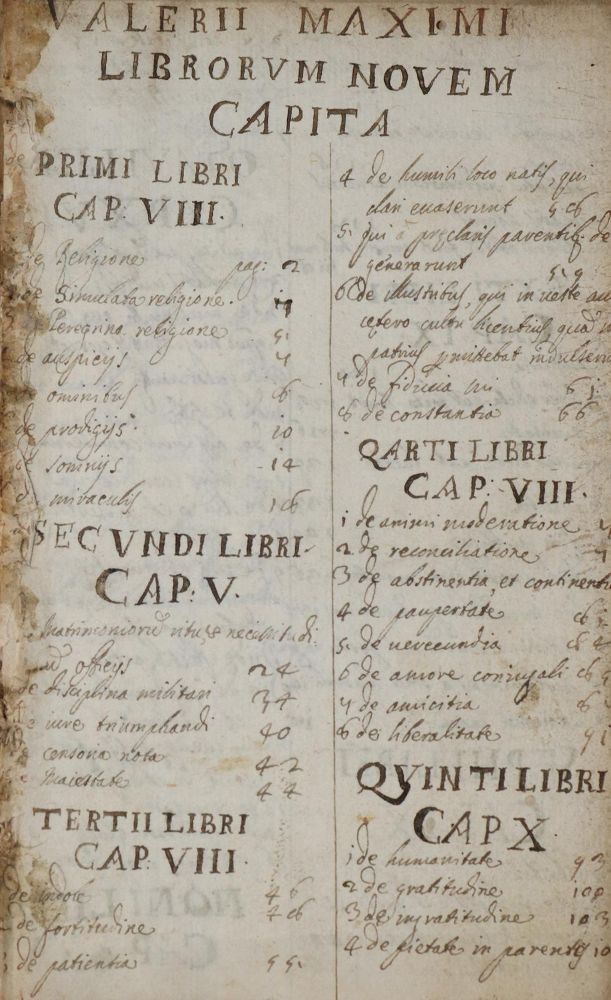 VALERII MAXIMI
LIBRORVM NOVEM
CAPITA
PRIMI LIBRI
CAP: VIII.
de Religione pag: 2
de Simulata religione. 4
Peregrina religione 5.
de auspicijs 7
de ominibus 8
de prodigijs 10
de somnijs 14
de miraculis 18
SECVNDI LIBRI
CAP: V.
Matrimoniorũ ritu, & necessitudi:
officijs 24
de disciplina militari 34
iure triumphandi 40
censoria nota 42
Maiestate 44
TERTII LIBRI
CAP: VIII
de indole 46
de fortitudine 48
de patientia 55.
4 de humili loco natis, qui
clari evaserunt 58
5. qui à pręclaris parentib. de
generarunt 59
6 de illustribus, qui in veste au
cętero cultu licentius, quã
patrius pmittebat indulseru
7 de fiducia sui 61
8 de constantia 66
QARTI LIBRI
CAP: VIII.
1 de animi moderatione
2 de reconciliatione
3 de abstinentia, et continenti
4 de paupertate
5. de verecundia 84
6 de amore coniugali
7 de amicitia
8 de liberalitate 91
QVINTI LIBRI
CAP X.
1 de humanitate 93
2 de gratitudine 100
3 de ingratitudine 103
4 de pietate in parentes 10